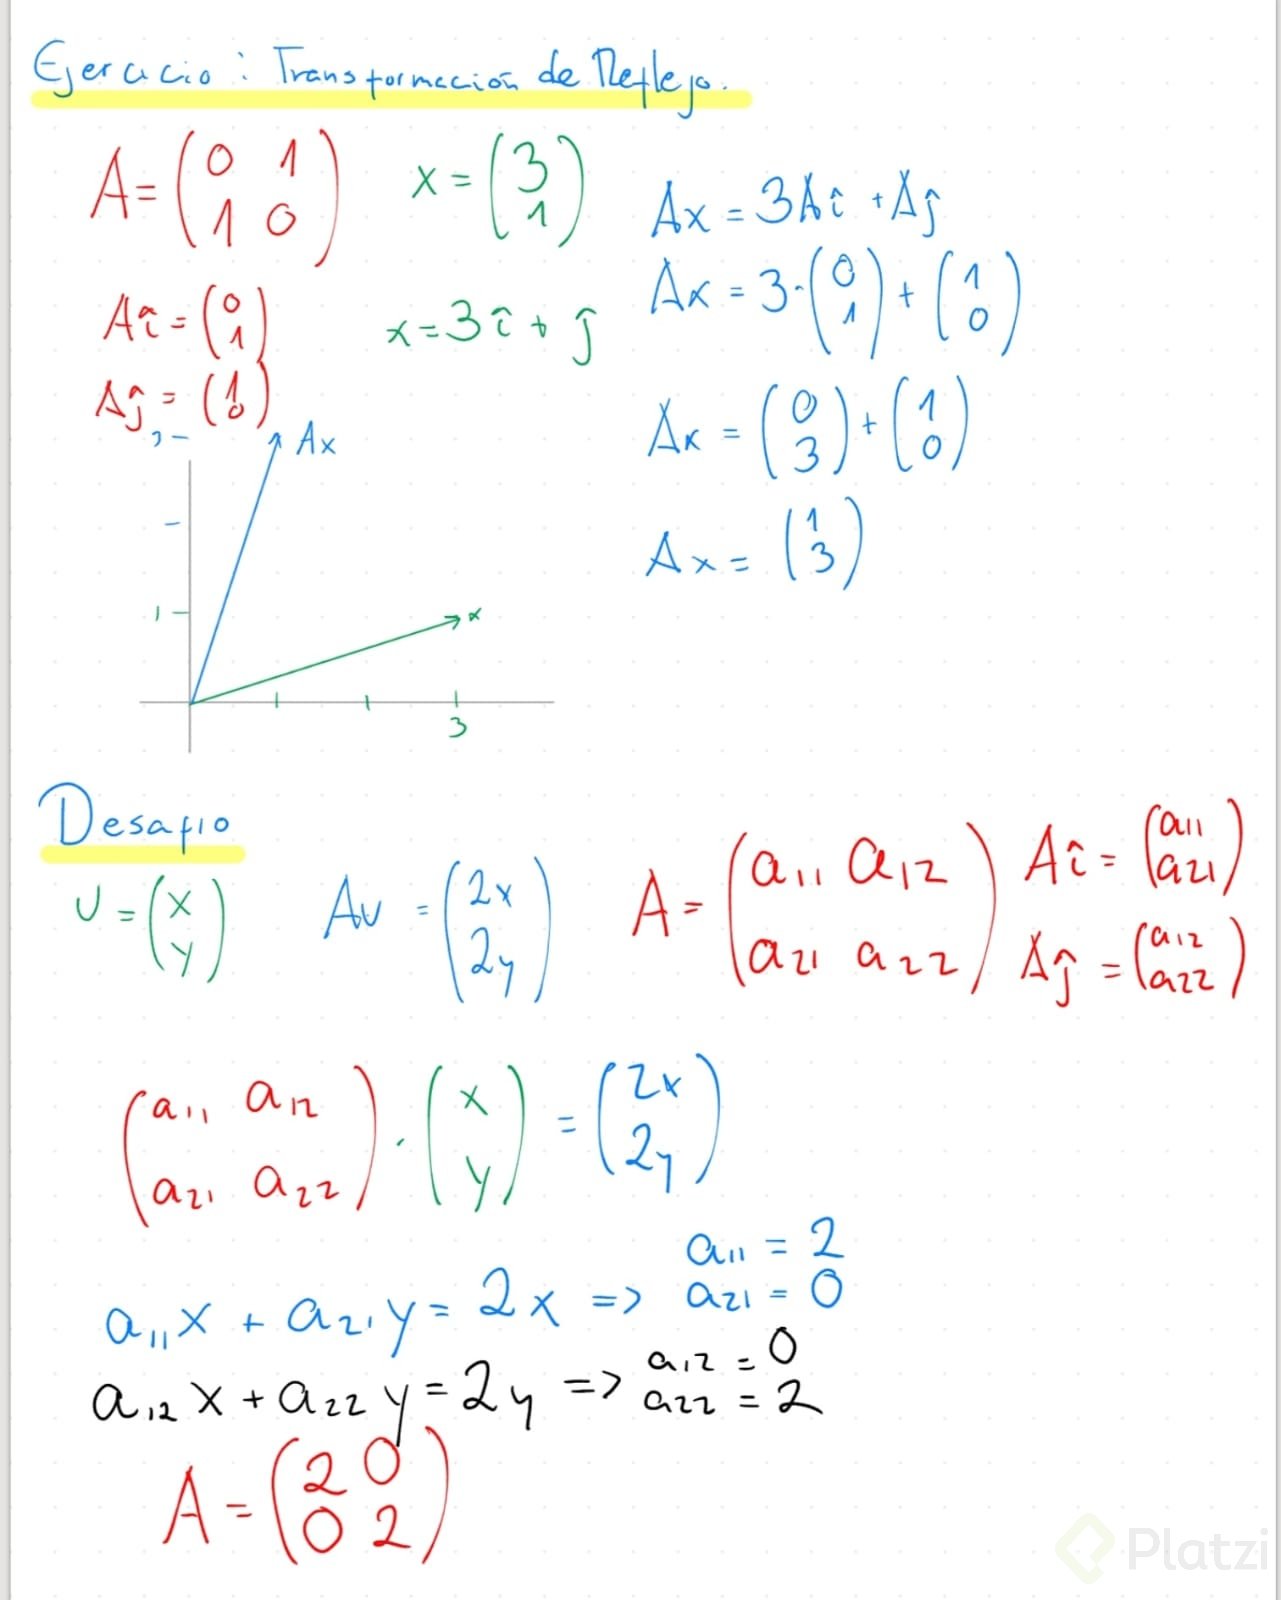 Ejercicio: Transformación de Reflejo.
A = (0 1
1 0)
x = (3
1)
Aî = (0
1)
x = 3î + ĵ
Aĵ = (1
0)
Ax = 3Aî + Aĵ
Ax = 3·(0
1) + (1
0)
Ax = (0
3) + (1
0)
Ax = (1
3)
Ax
1
x
3
Desafio
U = (x
y)
AU = (2x
2y)
A = (a11 a12
a21 a22)
Aî = (a11
a21)
Aĵ = (a12
a22)
(a11 a12
a21 a22) · (x
y) = (2x
2y)
a11x + a21y = 2x => a11 = 2
a21 = 0
a12x + a22y = 2y => a12 = 0
a22 = 2
A = (2 0
0 2)
Platzi